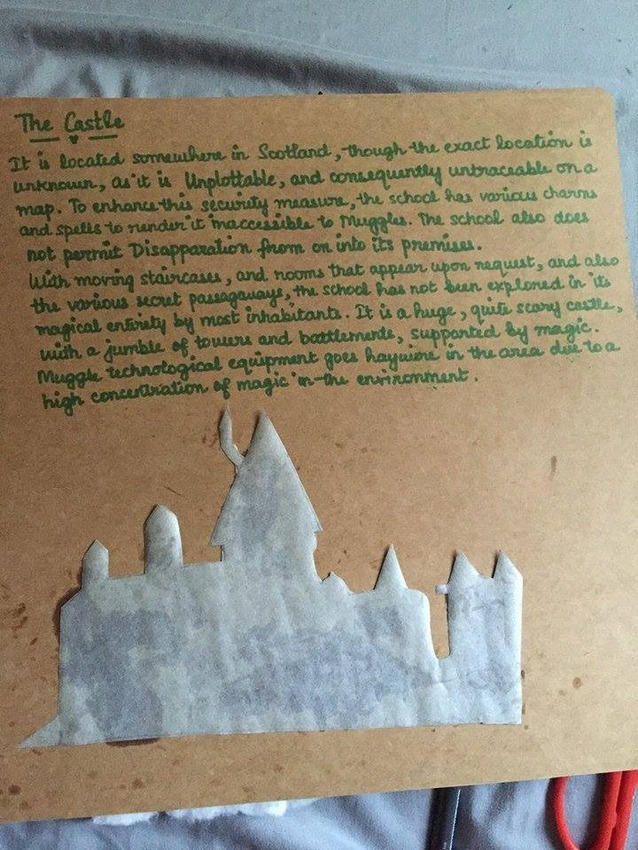 The Castle
It is located somewhere in Scotland, though the exact location is
unknown, as it is Unplottable, and consequently untraceable on a
map. To enhance this security measure, the school has various charms
and spells to render it inaccessible to Muggles. The school also does
not permit Disapparation from or into its premises.
With moving staircases, and rooms that appear upon request, and also
the various secret passageways, the school has not been explored in its
magical entirety by most inhabitants. It is a huge, quite scary castle,
with a jumble of towers and battlements, supported by magic.
Muggle technological equipment goes haywire in the area due to a
high concentration of magic in the environment.